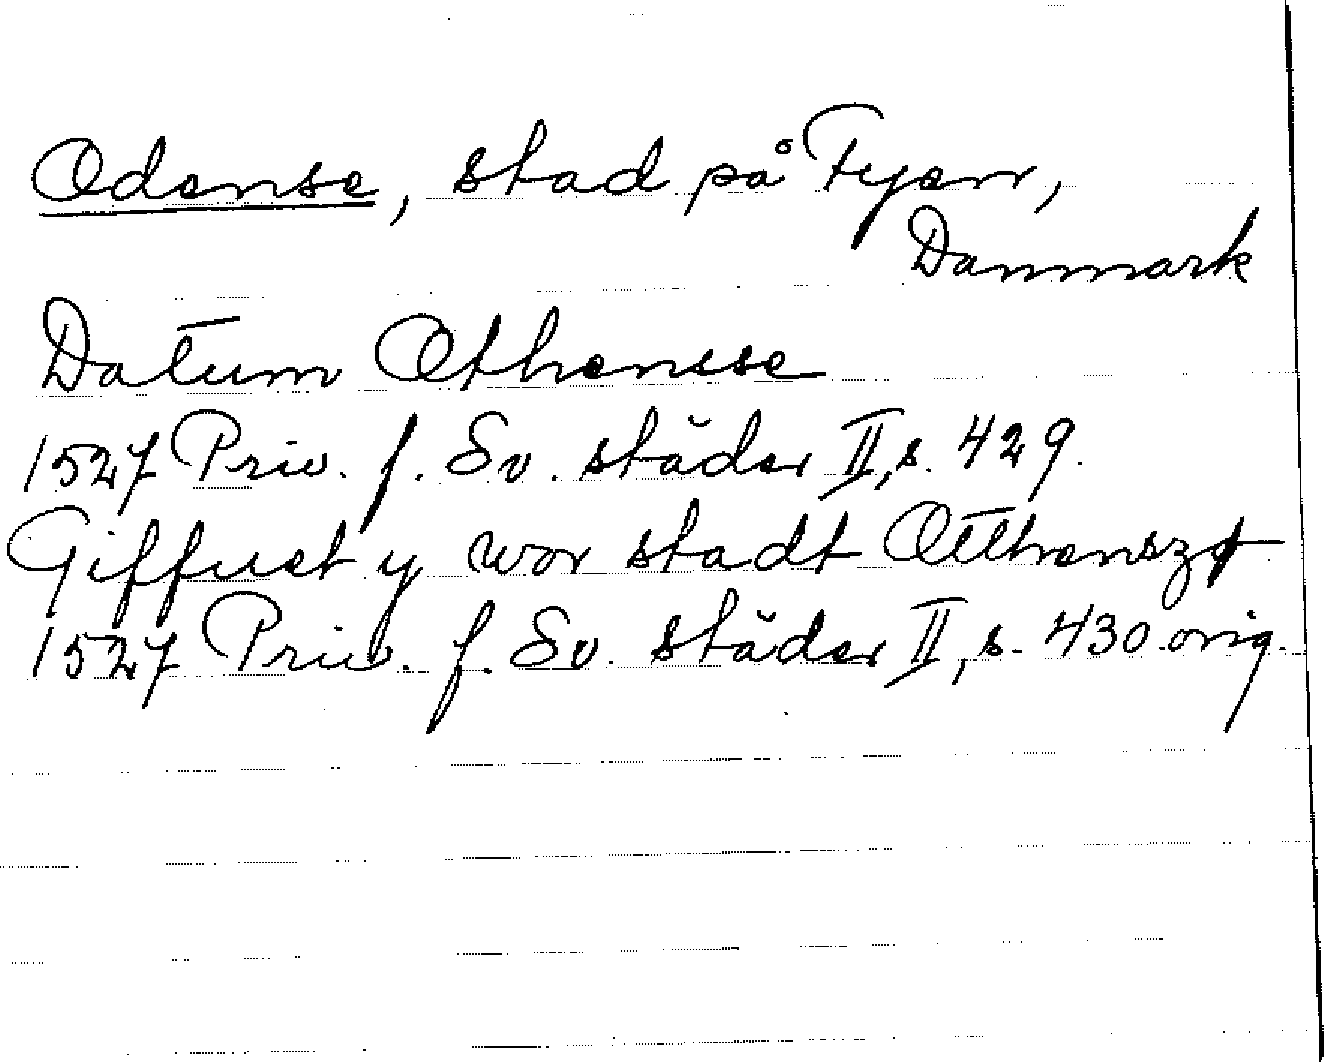 Odense, stad på Fyen,
Danmark
Datum Othensse
1527 Priv. f. Sv. städer II, s. 429.
Giffuet y wor stadt Otthensz
1527 Priv. f. Sv. städer II, s. 430 orig.